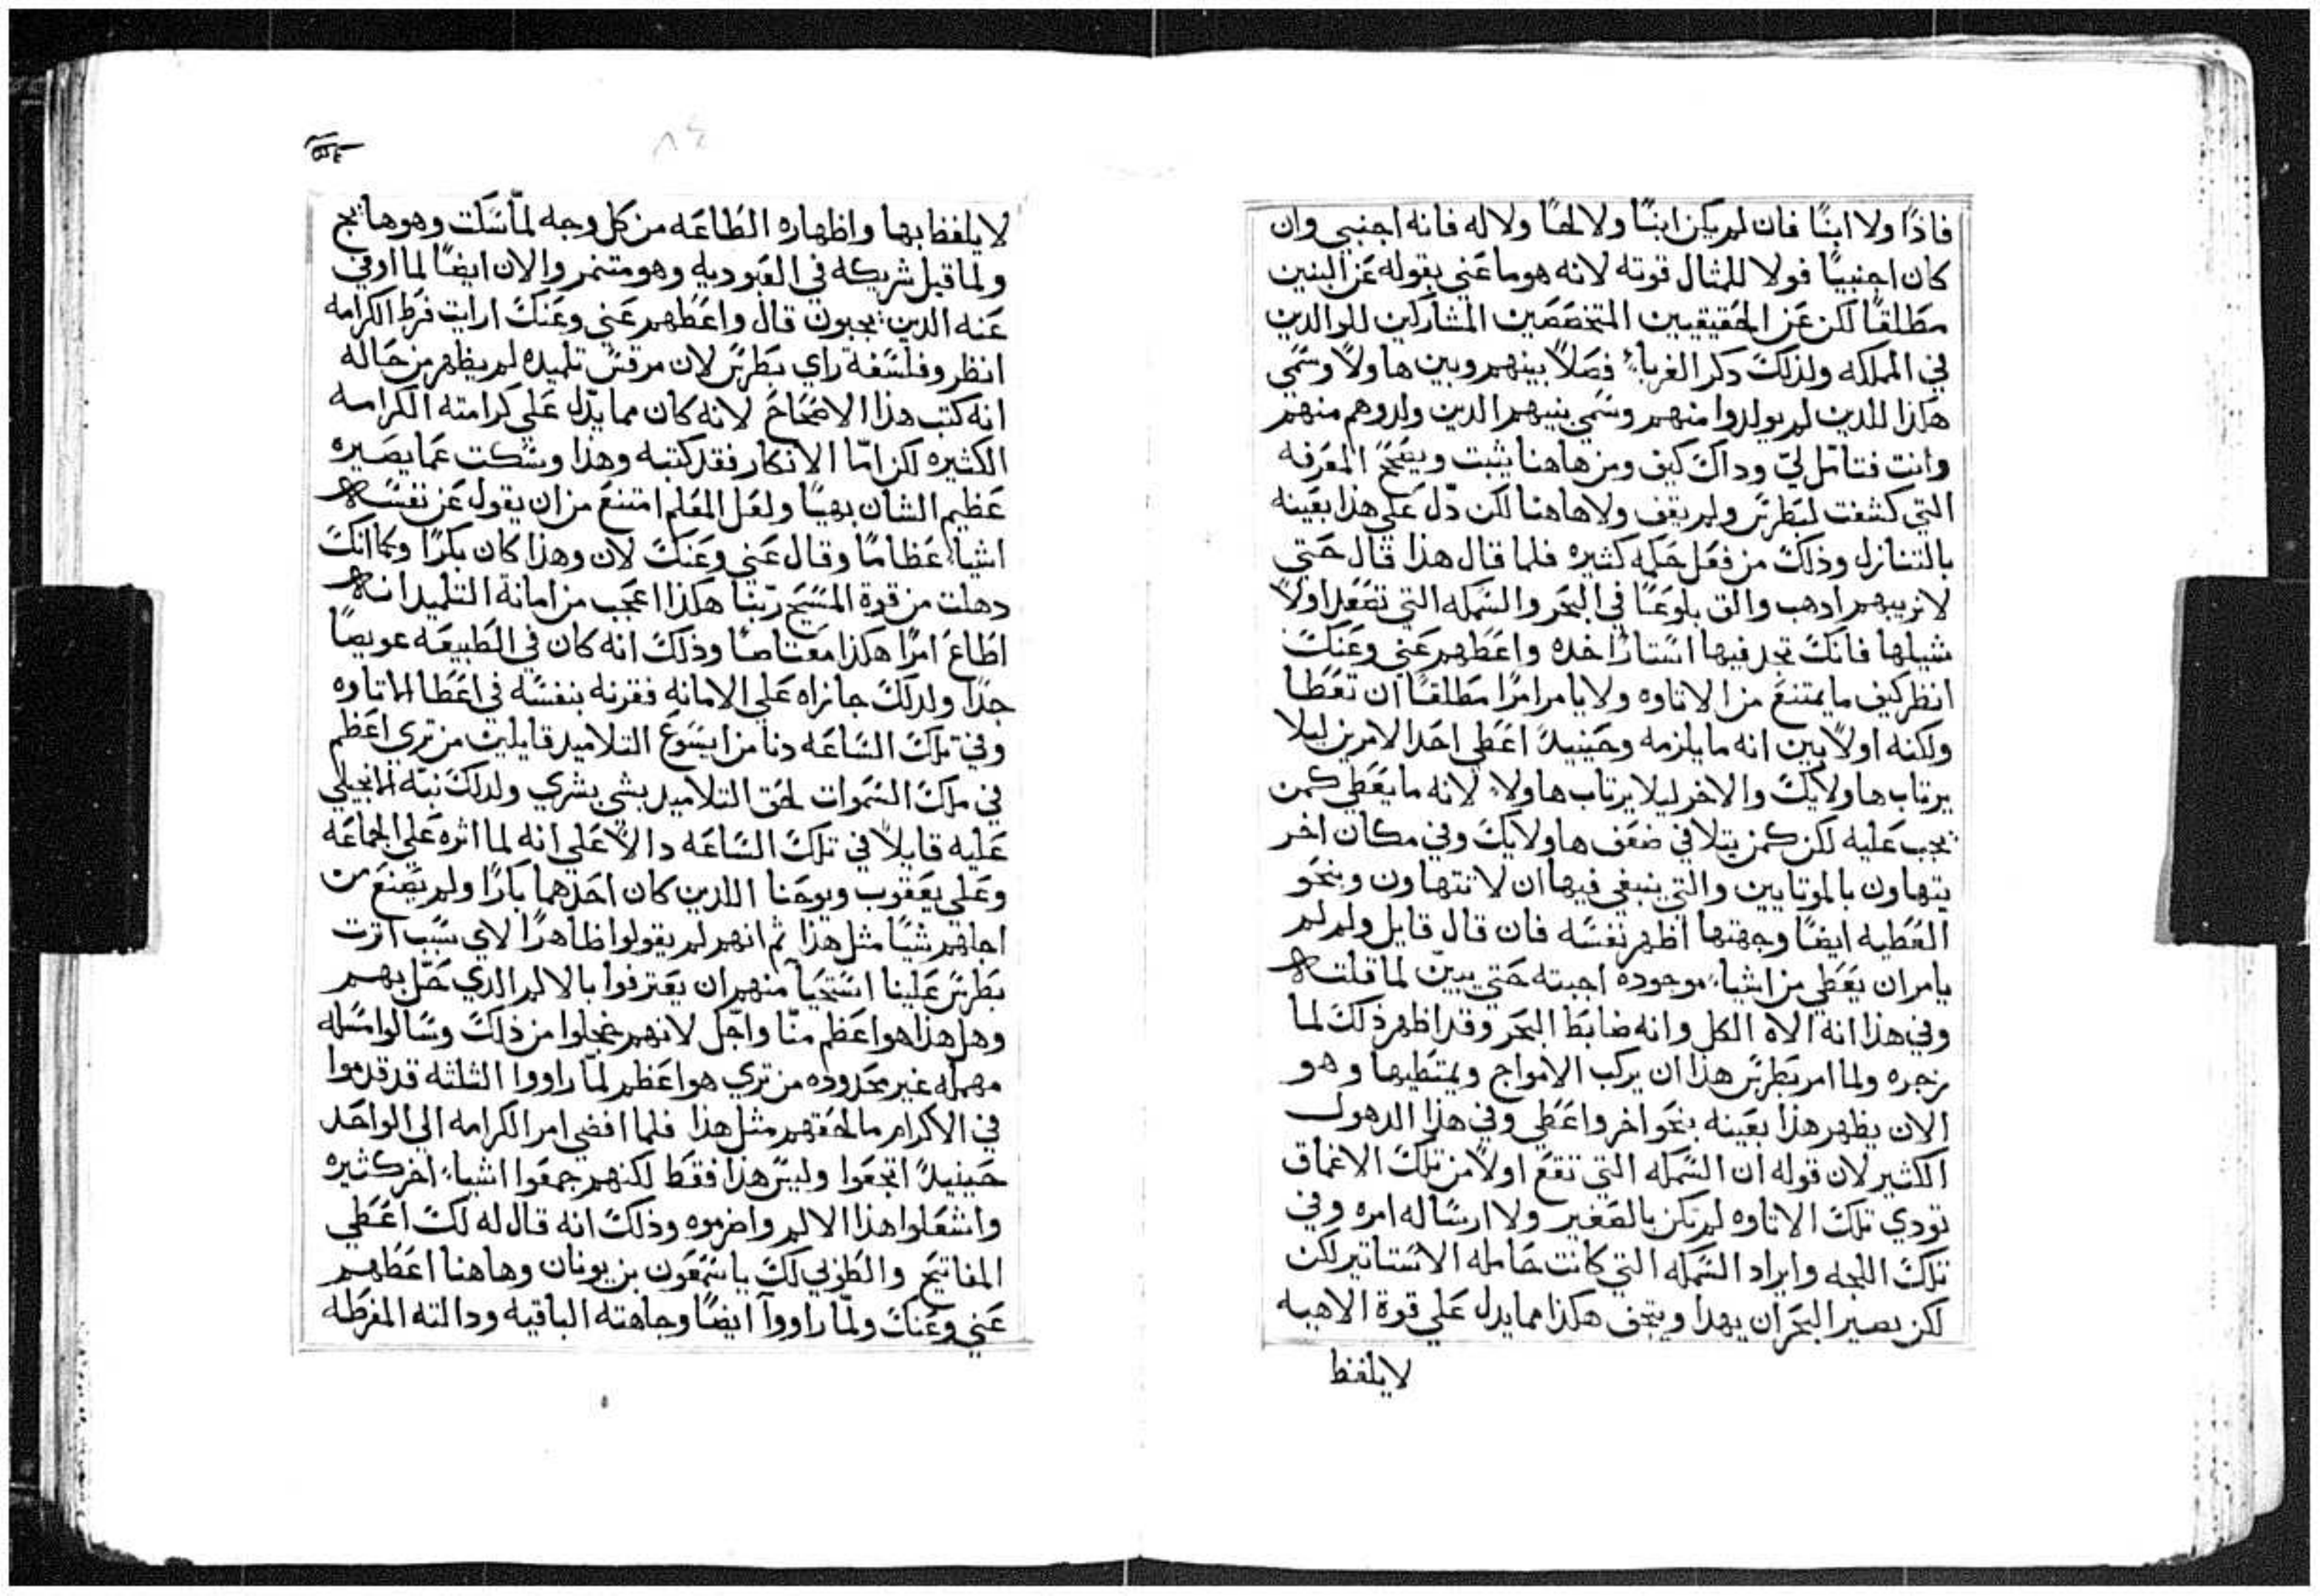 فاذًا ولا ابنًا فان لم يكن ابنًا ولا لحقًا ولا له فانه اجنبي وان
كان اجنبيًا فولا للمثال قوته لانه هو ما عني بقوله عن البنين
مطلقًا لكن عن الحقيقيين المتخصصين المشاركين للوالدين
في المملكه ولذلك دكر الغرباء فصلاً بينهم وبين هاولاً وسمي
هكذا للدين لم يولدوا منهم وسمي بنيهم الدين ولدوهم منهم
وانت فتامل لي وداك كيف ومن هاهنا يثبت ويصحح المعرفه
التي كشفت لبطرس ولم يقف ولا هاهنا لكن دل علي هذا بعينه
بالتنازل وذلك من فعل حكمه كثيره فلما قال هذا قال حتي
لا نريبهم ادهب والق بلوعًا في البحر والسمكه التي تصعد اولاً
شيلها فانك تجد فيها استارًا خده واعطهم عني وعنك
انظر كيف ما يمتنع من الاتاوه ولا يامر امرًا مطلقًا ان تعطا
ولكنه اولاً بين انه ما يلزمه وحينيدً اعطي احد الامرين ليلا
يرتاب هاولايك والاخر ليلا يرتاب هاولاء لانه ما يعطي كمن
يجب عليه لكن كمن يتلافي ضعف هاولايك وفي مكان اخر
يتهاون بالموتابين والتي ينبغي فيها ان لا نتهاون وبنحو
العطيه ايضًا وجهتها اظهر نفسه فان قال قايل ولم لم
يامر ان يعطي من اشياء موجوده اجبته حتي يبين لما قلت
وفي هذا انه الاه الكل وانه ضابط البحر وقد اظهر ذلك لما
زجره ولما امر بطرس هذا ان يركب الامواج ويمتطيها وهو
الان يظهر هذا بعينه بنحو اخر واعطي وفي هذا الدهول
الكثير لان قوله ان السمكه التي تقع اولاً من تلك الاعماق
تودي تلك الاتاوه لم تكن بالصغير ولا ارساله امره وفي
تلك اللجه وايراد السمكه التي كانت حامله الاستاتير لكن
لكن بصير البحر ان يهدا ويتحف هكذا مما يدل علي قوة الاهيه
لا يلفظ
لا يلفظ بها واظهاره الطاعه من كل وجه لما سكت وهو هايج
ولما قبل شريكه في العبوديه وهو متنمر والان ايضًا لما اوفي
عنه الدين يجبون قال واعطهم عني وعنك ارايت فرط الكرامه
انظر وفلسفة راي بطرس لان مرقس تلميده لم يظهر من حاله
انه كتب هذا الاصحاح لانه كان مما يدل علي كرامته الكرامه
الكثيره لكن اما الانكار فقد كتبه وهذا وسكت عما يصيره
عظيم الشان بهيًا ولعل المعلم امتنع من ان يقول عن نفسه
اشياء عظامًا وقال عني وعنك لان وهذا كان بكرًا وكما انك
دهلت من قوة المسيح ربنا هكذا اعجب من امانة التلميد انه
اطاع امرًا هكذا معتاصًا وذلك انه كان في الطبيعه عويصًا
جدًا ولدلك جازاه علي الامانه فقرنه بنفسه في اعطا الاتاوه
وفي تلك الساعه دنا من ايسوع التلاميد قايلين من تري اعظم
في ملك السموات لحق التلاميد بشي بشري ولدلك نبه الانجيلي
عليه قايلاً في تلك الساعه دالاً علي انه لما اثره علي الجماعه
وعلي يعقوب ويوحنا اللدين كان احدهما بكرًا ولم يصنع من
اجلهم شيًا مثل هذا ثم انهم لم يقولوا ظاهرًا لاي سبب اثرت
بطرس علينا استحيآ منهم ان يعترفوا بالالم الدي حل بهم
وهل هذا هو اعظم منا واجل لانهم خجلوا من ذلك وسالوا مسله
مهمله غير محدوده من تري هو اعظم لما راووا الثلثه قد قدموا
في الاكرام ما لحقهم مثل هذا فلما افضي امر الكرامه الي الواحد
حينيدً اتجعوا وليس هذا فقط لكنهم جمعوا اشياء اخر كثيره
واشعلوا هذا الالم واضرموه وذلك انه قال له لك اعطي
المفاتيح والطوبي لك يا سمعون بن يونان وهاهنا اعطهم
عني وعنك ولما راووا ايضًا وجاهته الباقيه ودالته المفرطه